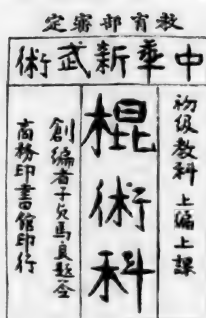 教育部審定
中華新武術
初級教科 上編上課
棍術科
創編者子貞馬良題簽
商務印書館印行